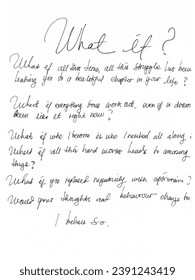 What if?
What if all this fear, all this struggle has been
leading you to a beautiful chapter in your life?
What if everything does work out, even if it doesn't
seem like it right now?
What if who I become is who I needed all along?
What if all this hard work leads to amazing
things?
What if you replaced negativity with optimism?
Would your thoughts and behaviour change too
I believe so.
shutterstock
IMAGE ID: 2391243419
www.shutterstock.com